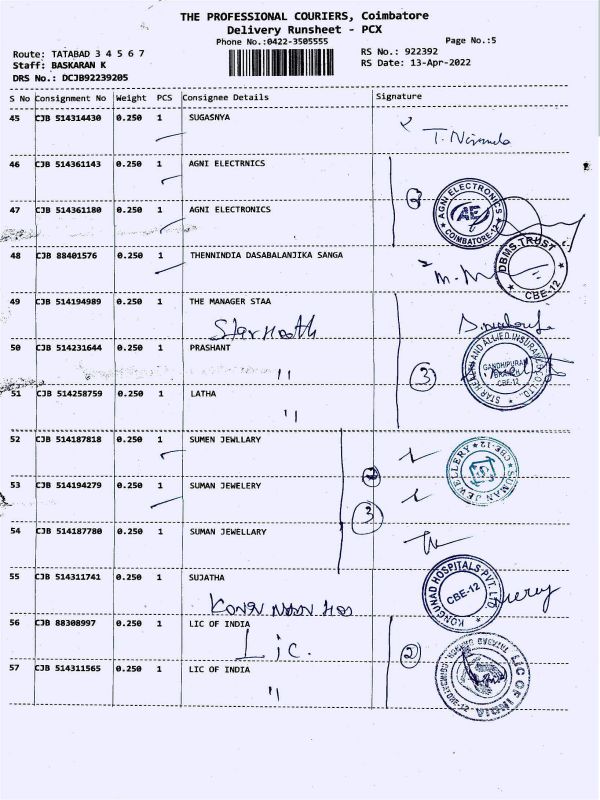 THE PROFESSIONAL COURIERS, Coimbatore
Delivery Runsheet - PCX
Phone No.:0422-3505555
Page No.:5
Route: TATABAD 3 4 5 6 7
RS No.: 922392
Staff: BASKARAN K
RS Date: 13-Apr-2022
DRS No.: DCJB92239205
S No Consignment No Weight PCS Consignee Details Signature
45 CJB 514314430 0.250 1 SUGASNYA
46 CJB 514361143 0.250 1 AGNI ELECTRNICS
47 CJB 514361180 0.250 1 AGNI ELECTRONICS
3
AGNI ELECTRONICS
AE
COIMBATORE-12
48 CJB 88401576 0.250 1 THENNINDIA DASABALANJIKA SANGA
DBMS TRUST
CBE-12
49 CJB 514194989 0.250 1 THE MANAGER STAA
Star Health
50 CJB 514231644 0.250 1 PRASHANT
"
3
STAR HEALTH AND ALLIED INSURANCE CO LTD.,
GANDHIPURAM
BRANCH
CBE-12
51 CJB 514258759 0.250 1 LATHA
"
52 CJB 514187818 0.250 1 SUMEN JEWLLARY
53 CJB 514194279 0.250 1 SUMAN JEWELERY
SUMAN JEWELLERY
CBE-12
3
54 CJB 514187780 0.250 1 SUMAN JEWELLARY
55 CJB 514311741 0.250 1 SUJATHA
KONGUNAD HOSPITALS PVT. LTD.
CBE-12
56 CJB 88308997 0.250 1 LIC OF INDIA
Lic.
2
57 CJB 514311565 0.250 1 LIC OF INDIA
"
LIC OF INDIA